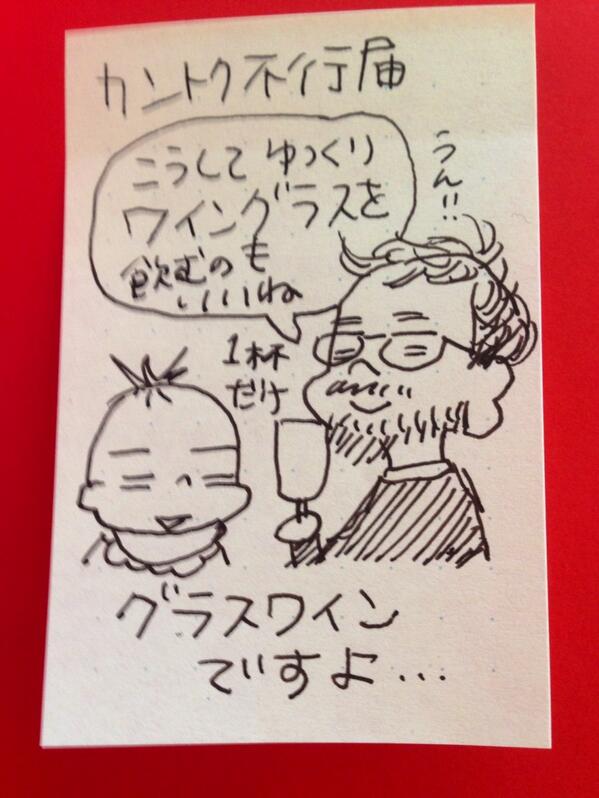 カントク不行届
こうして ゆっくり
ワイングラスを
飲むのも
いいね
うん!!
1杯
だけ
グラスワイン
ですよ...